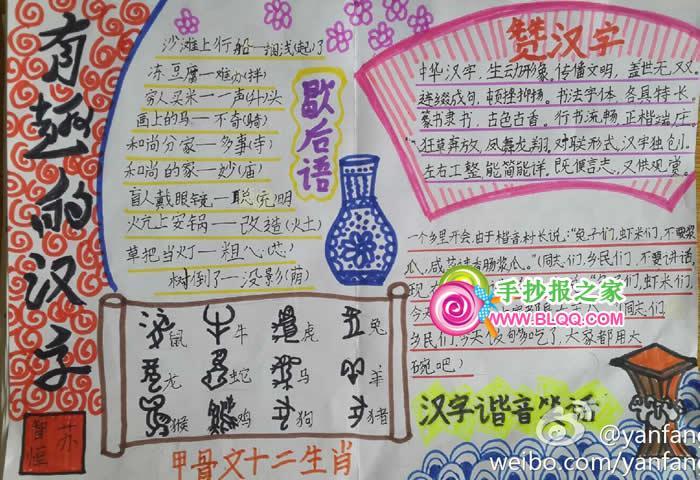 有趣的汉字
苏
智恒
沙滩上行船—搁浅(起)了
冻豆腐—难办(拌)
穷人买米—一声(升)头
画上的马—不奇(骑)
和尚分家—多事(寺)
和尚的家—妙(庙)
盲人戴眼镜—聪(充)明
炕上安锅—改造(火土)
草把当灯—粗心(芯)
树倒了—没影(荫)
歇后语
赞汉字
中华汉字,生动形象,传播文明,盖世无双
连缀成句,顿挫抑扬。书法字体,各具特长,
篆书隶书,古色古香。行书流畅,正楷端庄,
狂草奔放,凤舞龙翔,对联形式,汉字独创。
左右工整,能简能详。既便言志,又供观赏。
一个乡里开会,由于楷音,村长说:“兔子们,虾米们,不要浆
瓜,咸菜请香肠浆瓜。”(同志们,乡民们,不要讲话,
兔子们,虾米们,
同志们
乡民们,今天
吃了,大家都用大
碗吧)
汉字谐音笑话
鼠
牛
虎
兔
龙
蛇
马
羊
猴
鸡
狗
猪
甲骨文十二生肖
手抄报之家
WWW.BLQQ.COM
@yanfang
weibo.com/yanfang